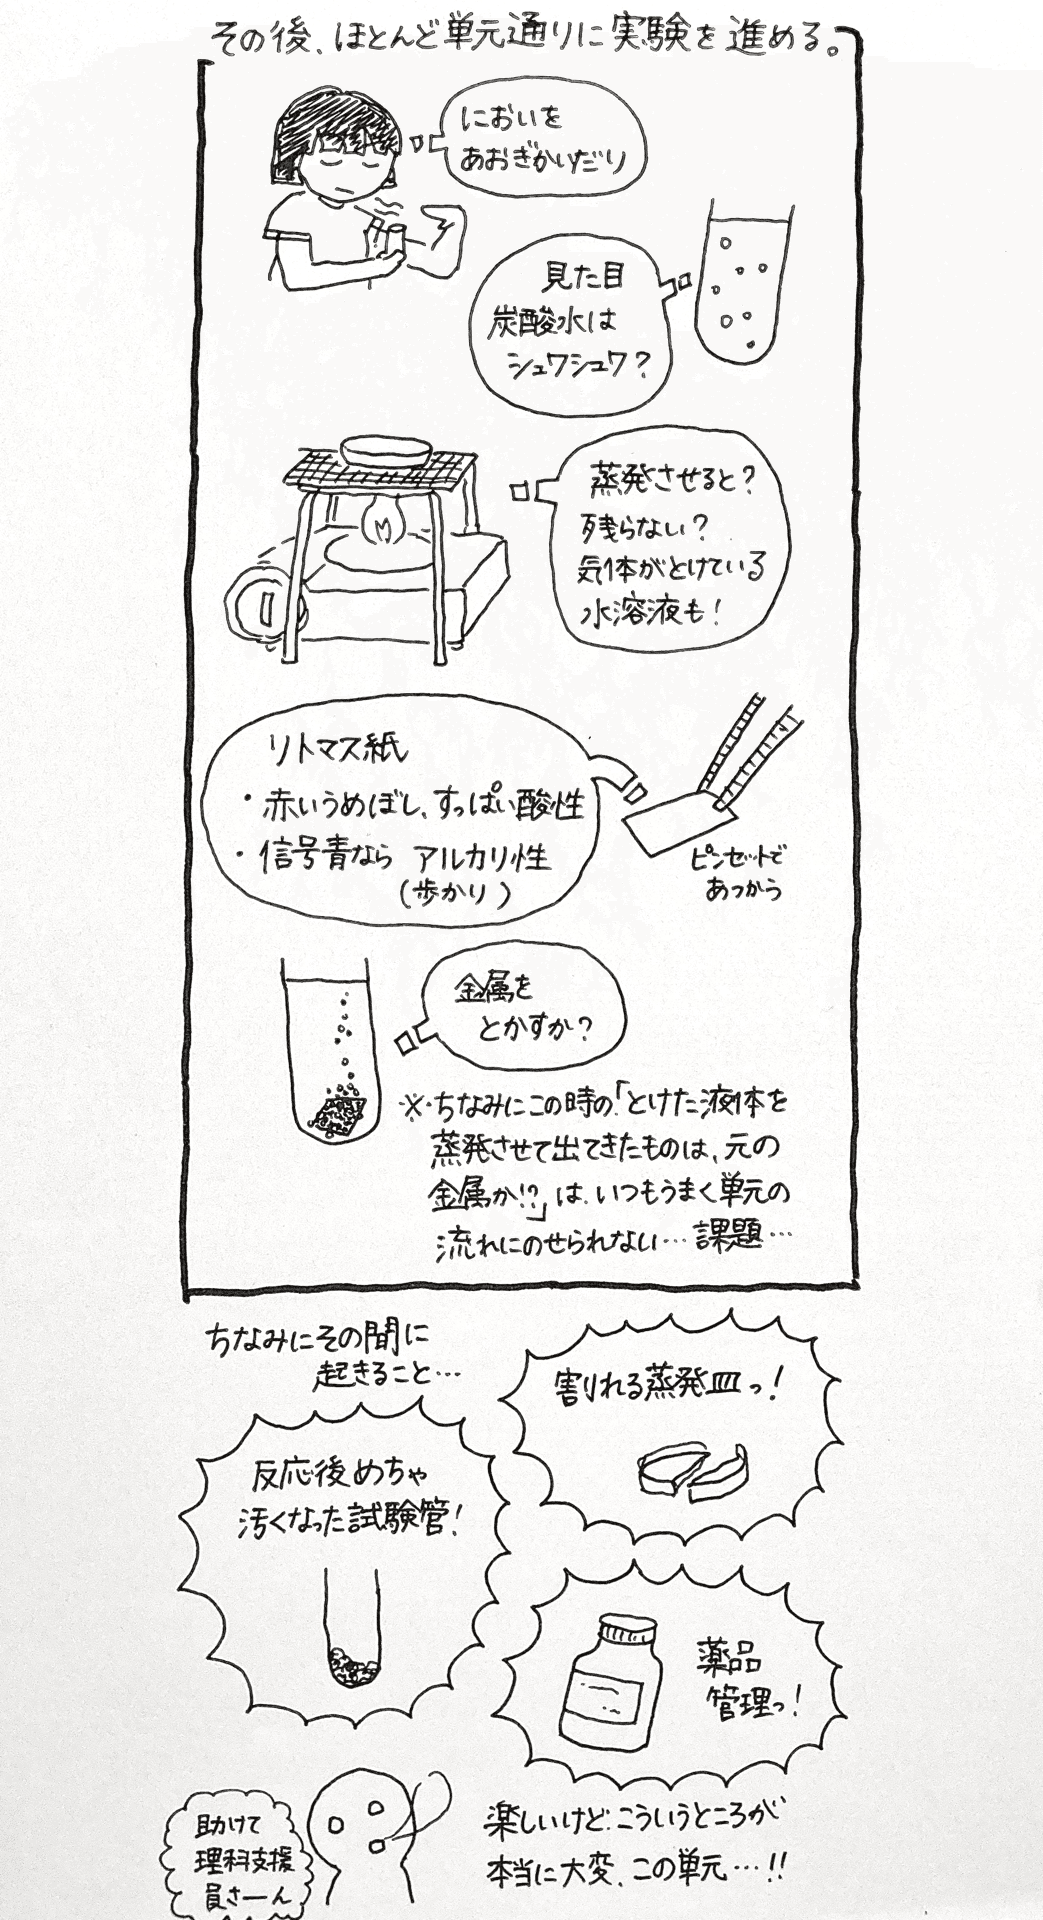 その後、ほとんど単元通りに実験を進める。
においを
あおぎかいだり
見た目
炭酸水は
シュワシュワ？
蒸発させると？
残らない？
気体がとけている
水溶液も！
リトマス紙
・赤いうめぼし、すっぱい酸性
・信号青なら アルカリ性
（歩かり）
ピンセットで
あつかう
金属を
とかすか？
※ちなみにこの時の「とけた液体を
蒸発させて出てきたものは、元の
金属か!?」は、いつもうまく単元の
流れにのせられない…課題…
ちなみにその間に
起きること…
割れる蒸発皿っ！
反応後めちゃ
汚くなった試験管！
薬品
管理っ！
助けて
理科支援
員さーん
楽しいけど、こういうところが
本当に大変、この単元…!!